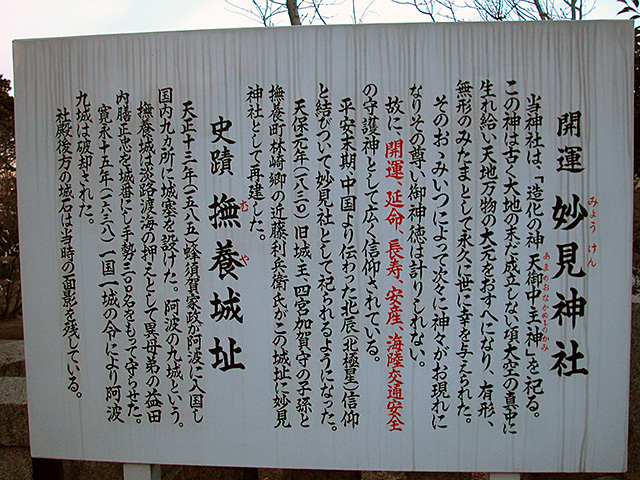 開運 妙見神社
みょう けん
当神社は、「造化の神 天御中主神」を祀る。
あまのみなかぬしのかみ
この神は古く大地の未だ成立しない頃大空の真中に
生れ給い天地万物の大元をおすへになり、有形、
無形のみたまとして永久に世に幸を与えられた。
そのおゝみいつによって次々に神々がお現れに
なりその尊い御神徳は計りしれない。
故に 開運、延命、長寿、安産、海陸交通安全
の守護神として広く信仰されている。
平安末期、中国より伝わった北辰(北極星)信仰
と結びついて妙見社として祀られるようになった。
天保元年(一八三〇)旧城主、四宮加賀守の子孫と
撫養町林崎郷の近藤利兵衛氏がこの城址に妙見
神社として再建した。
史蹟 撫養城址
む や
天正十三年(一五八五)蜂須賀家政が阿波に入国し
国内九カ所に城塞を設けた。阿波の九城という。
撫養城は淡路渡海の押えとして異母弟の益田
内膳正忠を城番にし手勢三〇〇名をもって守らせた。
寛永十五年(一六三八)一国一城の令により阿波
九城は破却された。
社殿後方の城石は当時の面影を残している。